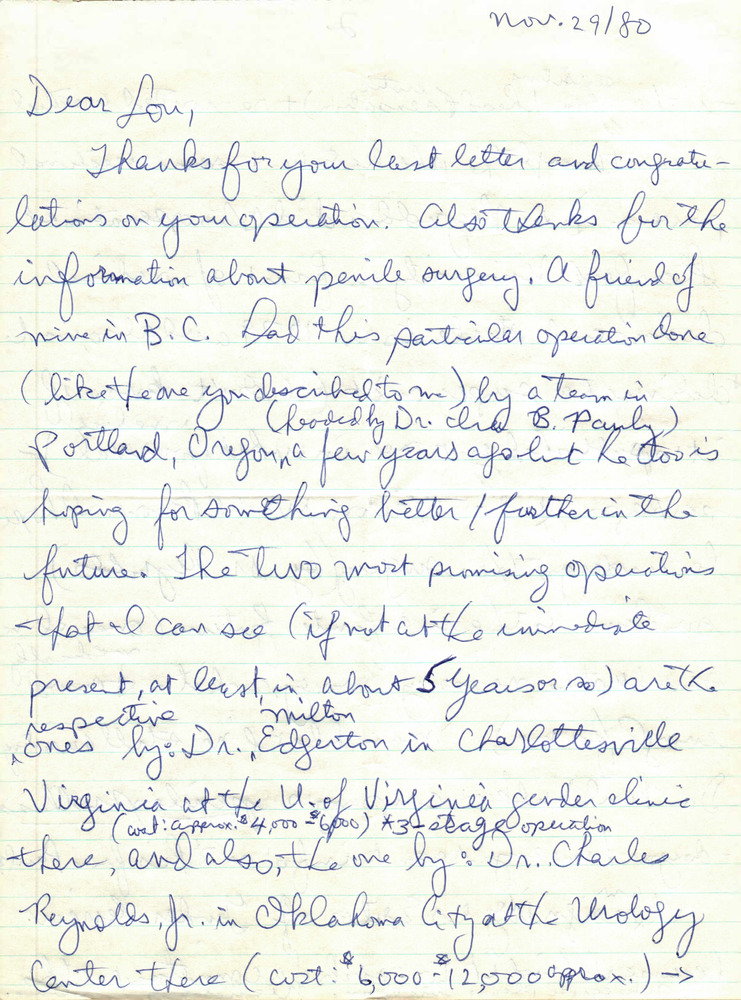 Nov. 29/80
Dear Lou,
Thanks for your last letter and congratu-
lations on your operation. Also thanks for the
information about penile surgery. A friend of
mine in B.C. had this particular operation done
(like the one you described to me) by a team in
(headed by Dr. Ira B. Pauly)
Portland, Oregon, a few years ago but he too is
hoping for something better / further in the
future. The two most promising operations
that I can see (if not at the immediate
present, at least, in about 5 years or so) are the
respective milton
ones by: Dr. Edgerton in Charlottesville
Virginia at the U. of Virginia gender clinic
(cost: approx. $4,000 - $6,000) *3-stage operation
there, and also, the one by: Dr. Charles
Reynolds, Jr. in Oklahoma City at the Urology
Center there (cost: $6,000 - $12,000 approx.) →